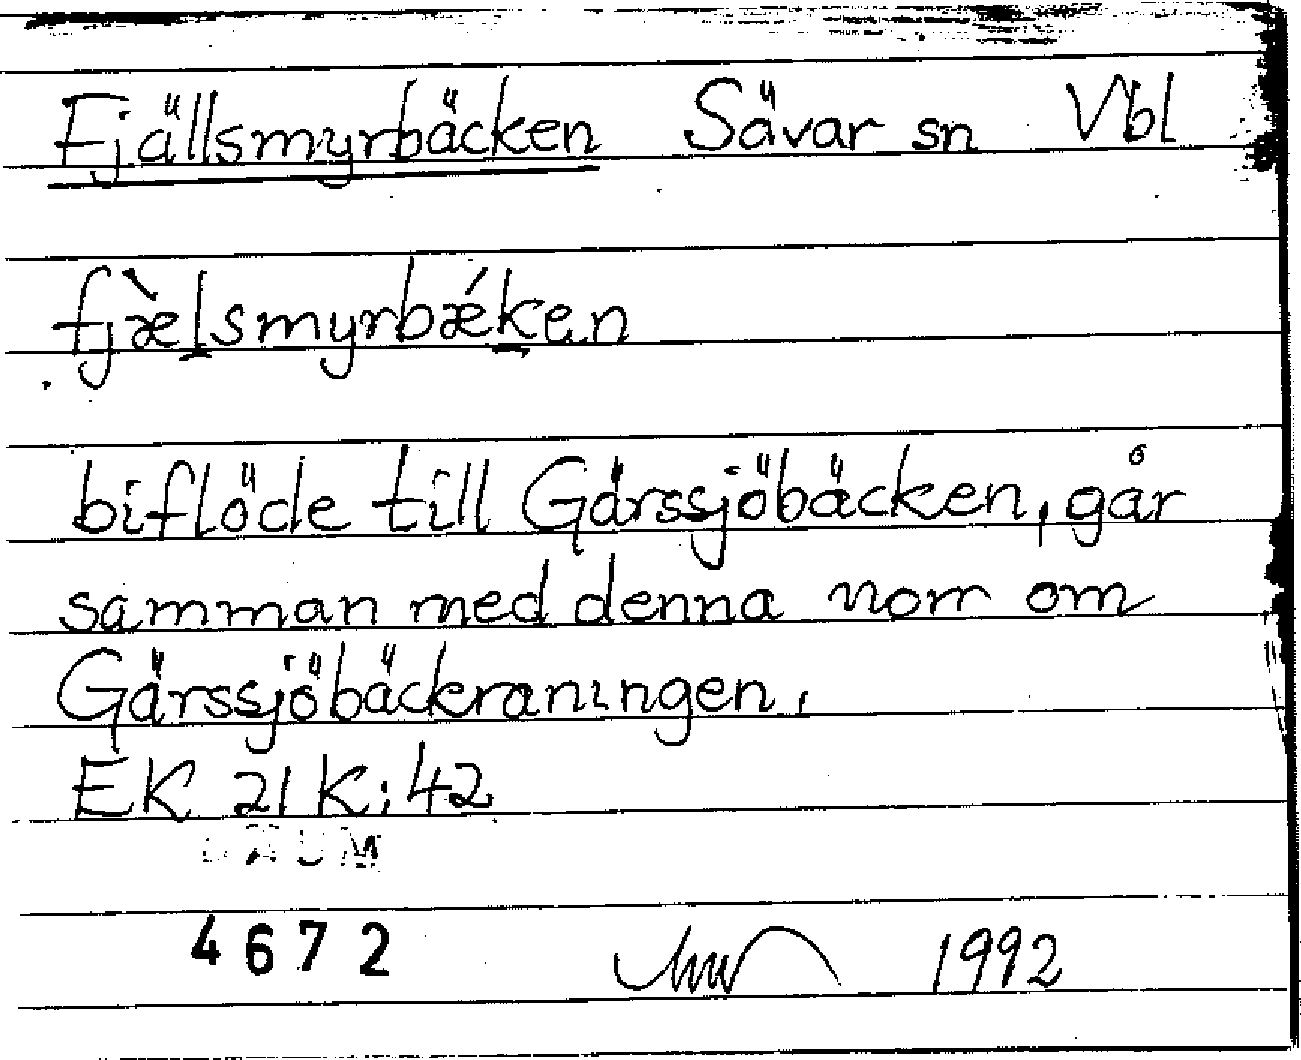 Fjällsmyrbäcken Sävar sn Vbl
fjæ̀lsmyrbǽken
biflöde till Gärssjöbäcken, går
samman med denna norr om
Gärssjöbäckraningen.
EK 21 K: 42
DAUM
4672 1992